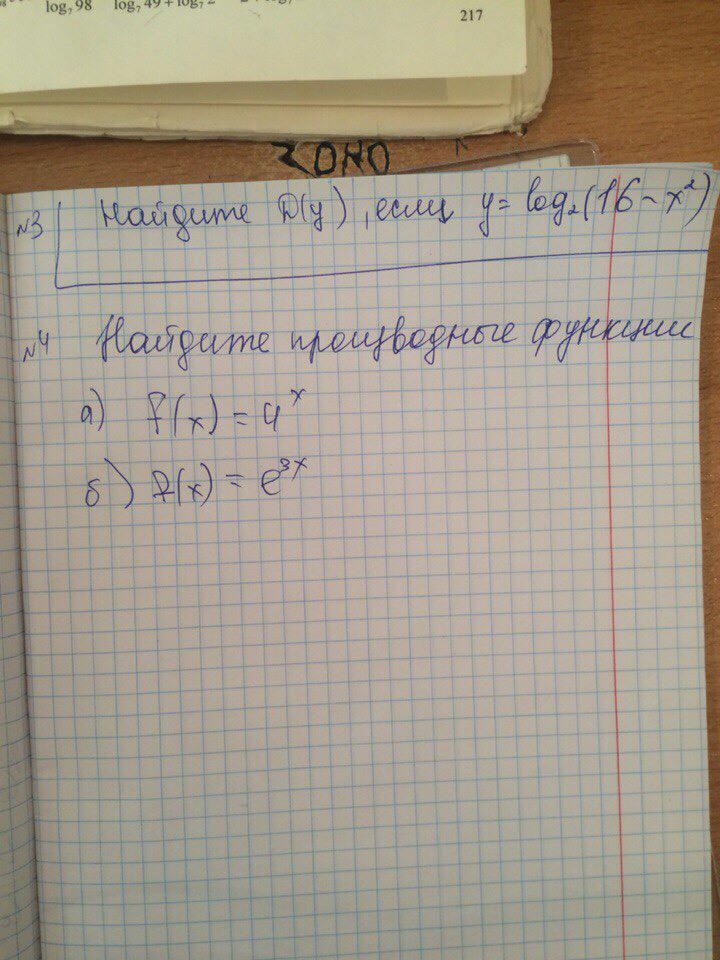 log₇ 98 log₇ 49 + log₇ 2
217
ZОНО
№3 Найдите D(y), если y = log₂(16 - x²)
№4 Найдите производные функции
а) f(x) = 4ˣ
б) f(x) = e³ˣ